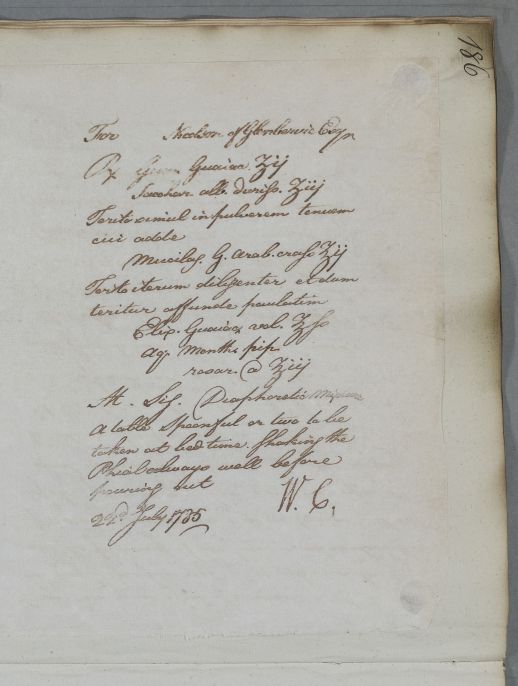 186
For Nicolson of Glenbervie Esqr
Rx Gum Guaiac. ʒij
Sacchar. alb. duriss. ʒiij
Terito simul in pulverem tenuem
cui adde
Mucilag. G. Arab. crass ʒij
Terito iterum diligenter et dum
teritur affunde paulatim
Elix. Guaiac vol. ʒss
Aq. Menth. pip.
rosar. a ℥iij
M. Sig. Diaphoretic Mixture
A table spoonful or two to be
taken at bed time. Shaking the
Phial always well before
pouring out
W. C.
22d July 1785